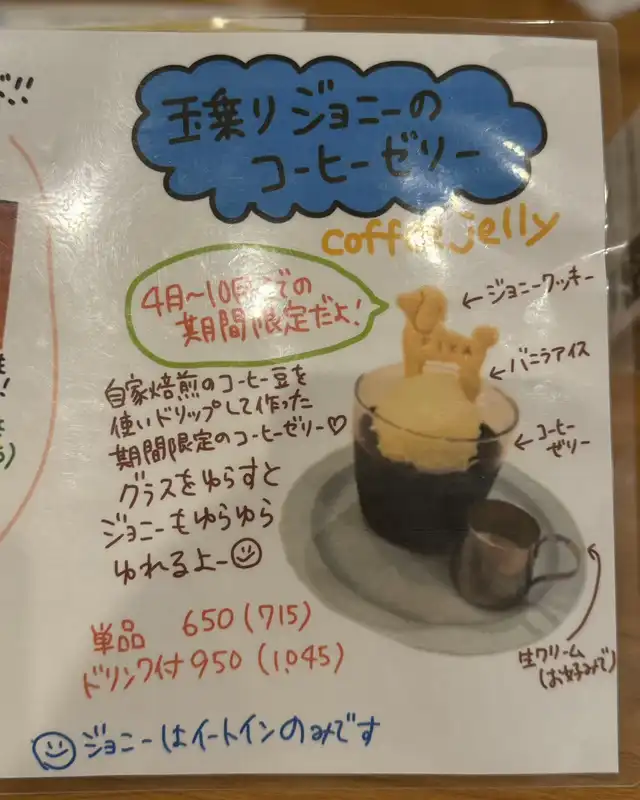 玉乗りジョニーの
コーヒーゼリー
coffee jelly
4月〜10月までの
期間限定だよ!
←ジョニークッキー
FIKA
←バニラアイス
←コーヒー
ゼリー
自家焙煎のコーヒー豆を
使いドリップして作った
期間限定のコーヒーゼリー♡
グラスをゆらすと
ジョニーもゆらゆら
ゆれるよー
生クリーム
(お好みで)
単品 650(715)
ドリンク付 950(1,045)
ジョニーはイートインのみです